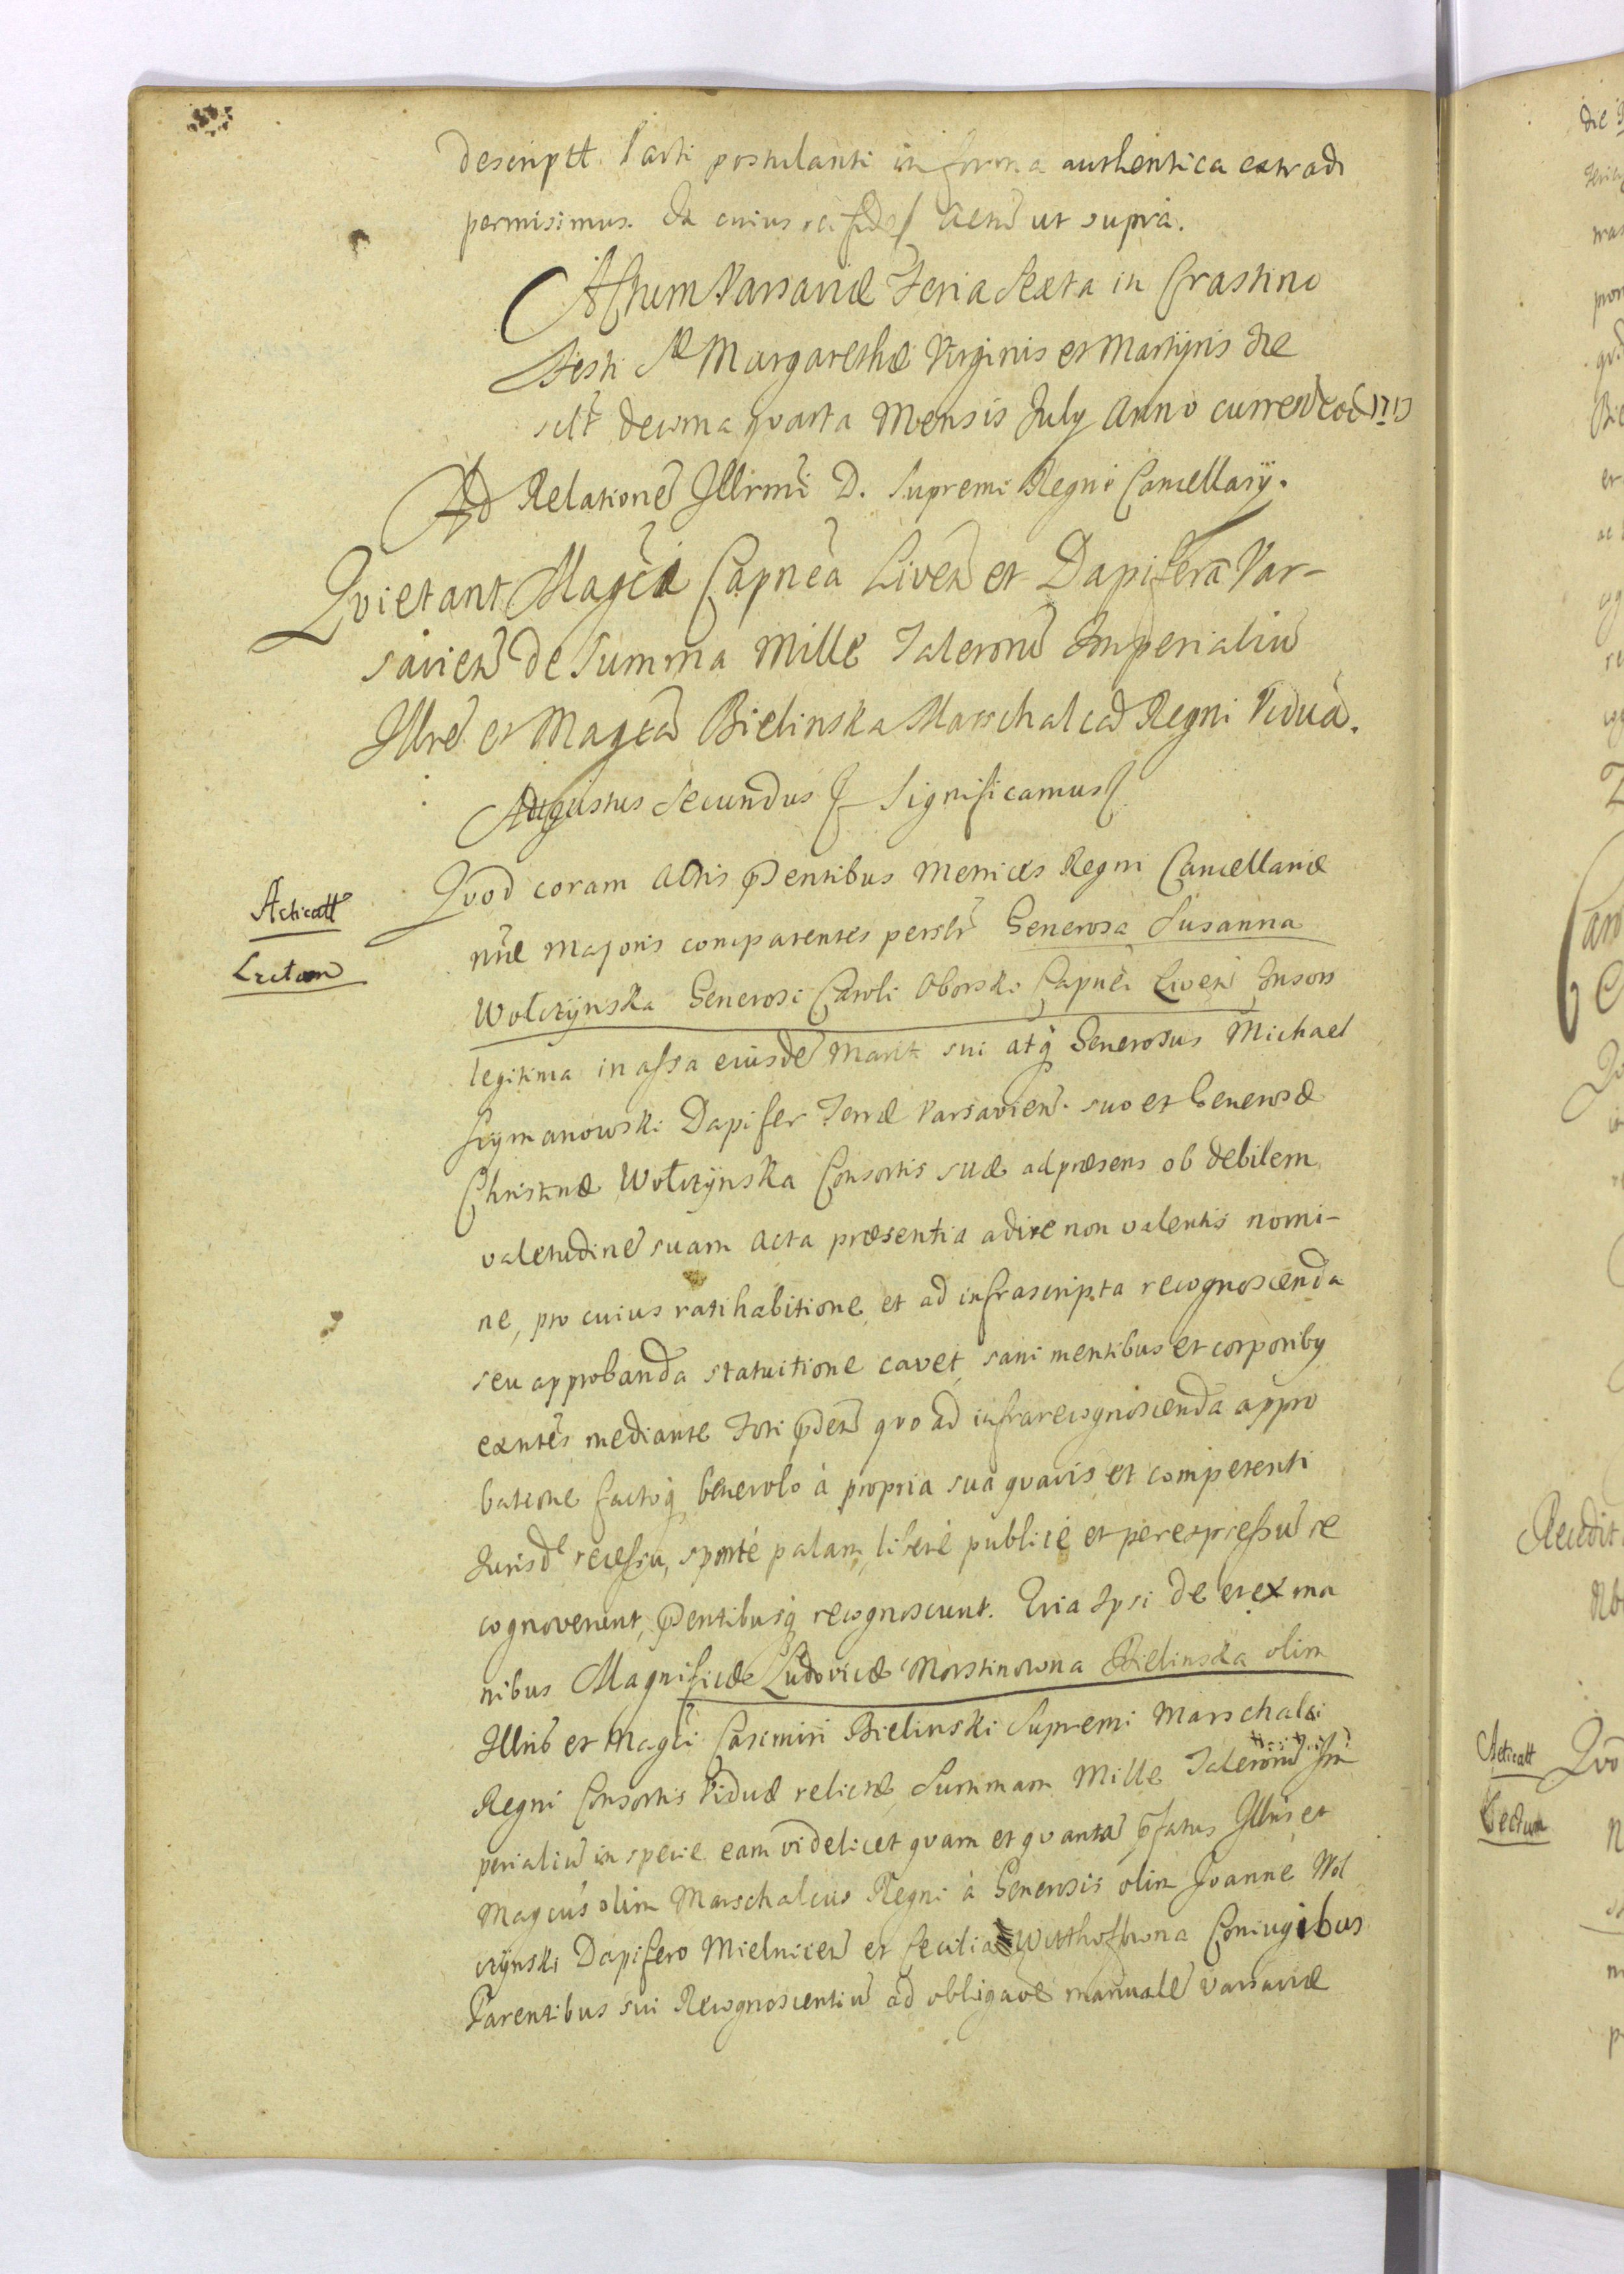 descriptt. Parti postulanti in forma authentica extradi
permisimus. In cuius rei fidẽ Actũ ut supra.
Actum Varsaviæ Feria Sexta in Crastino
Festi Sæ Margarethæ Virginis et Martyris die
sclt decima quarta Mensis July Anno currẽ eod 1713
Ad Relationẽ Illrmi D. Supremi Regni Cancellarÿ.
Qvietant Magcã Capneã Liveñ et Dapiferã Var-
savieñ de Summa Mille Talerorũ Imperialiũ
Illrẽ et Magcã Bielinska Marschalcã Regni Viduã.
Augustus Secundus Significamus
Acticatt
Lectum
Qvod coram Actis p̃entibus Metrices Regni Cancellariæ
nr̃æ Majoris comparentes persl̃r Generosa Susanna
Wołczÿnska Generosi Caroli Oborski Capnei Liveñ Consors
legitima in assa eiusdẽ Mariti sui atq̃ Generosus Michael
Szymanowski Dapifer Terræ Varsavieñ. suo et Generosæ
Christinæ Wołczÿnska Consortis suæ ad præsens ob debilem
valetudinẽ suam Acta præsentia adire non valentis nomi-
ne, pro cuius ratihabitione et ad infrascripta recognoscenda
seu approbanda statuitione cavet, sani mentibus et corporiby
exñtes mediante Fori p̃deñ qvo ad infrarecognoscenda appro
batione factoq̃ benevolo à propria sua qvavis et competenti
Jurisd̃e recessu, sponté palam, liberé publicé et per expressũ re
cognoverunt, p̃entibusq̃ recognoscunt. Qvia Ipsi de et ex ma
nibus Magnificæ Ludovicæ Morstinowna Bielinska olim
Illris et Magci Casimiri Bielinski Supremi Marschalci
Regni Consortis Viduæ relictæ, Summam Mille Talerorũ Im
perialiũ in specie eam videlicet qvam et qvantã p̃fatus Illris et
Magcus olim Marschalcus Regni à Generosis olim Joanne Woł
czÿnski Dapifero Mielniceñ et Cecilia Witthoffowna Coniugibus
Parentibus sui Recognoscentiũ ad obligãoẽ manualẽ Varsaviæ
Acticatt
Lectum